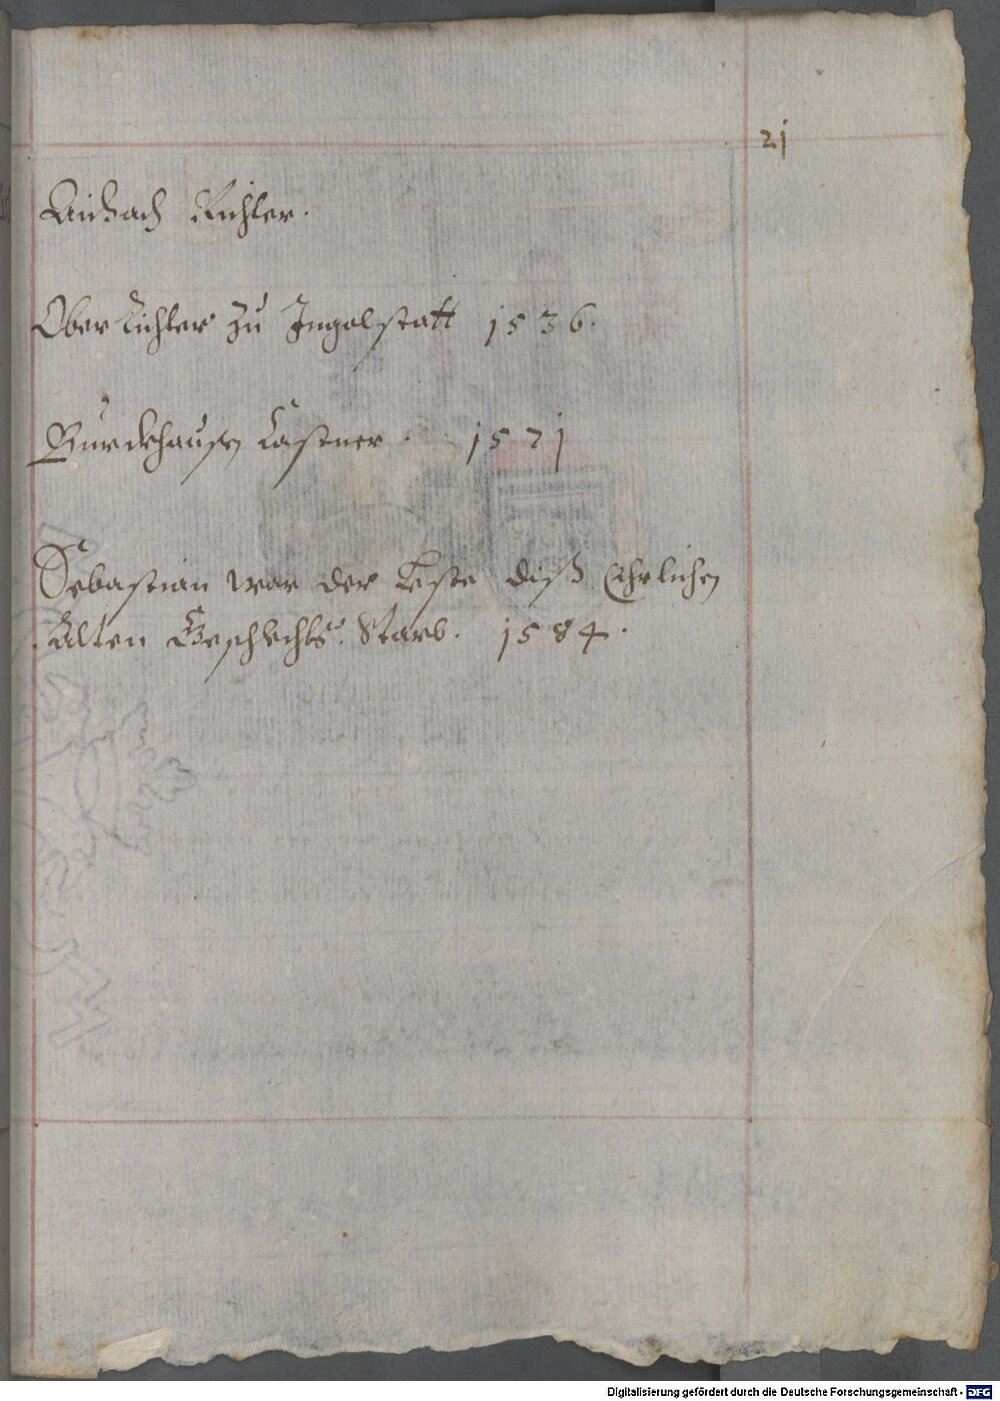 21
Aichach Richter.
Ober Richter zu Ingolstatt 1536.
Burckhausen Castner. 1571
Sebastian war der Leste diß Ehrlichen
Alten Geschlechts. Starb. 1584.
Digitalisierung gefördert durch die Deutsche Forschungsgemeinschaft - DFG